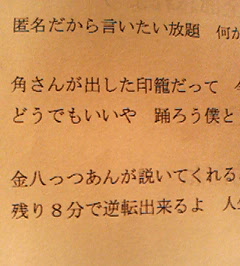 匿名だから言いたい放題　何か
角さんが出した印籠だって
どうでもいいや　踊ろう僕と
金八っつあんが説いてくれる
残り８分で逆転出来るよ　人